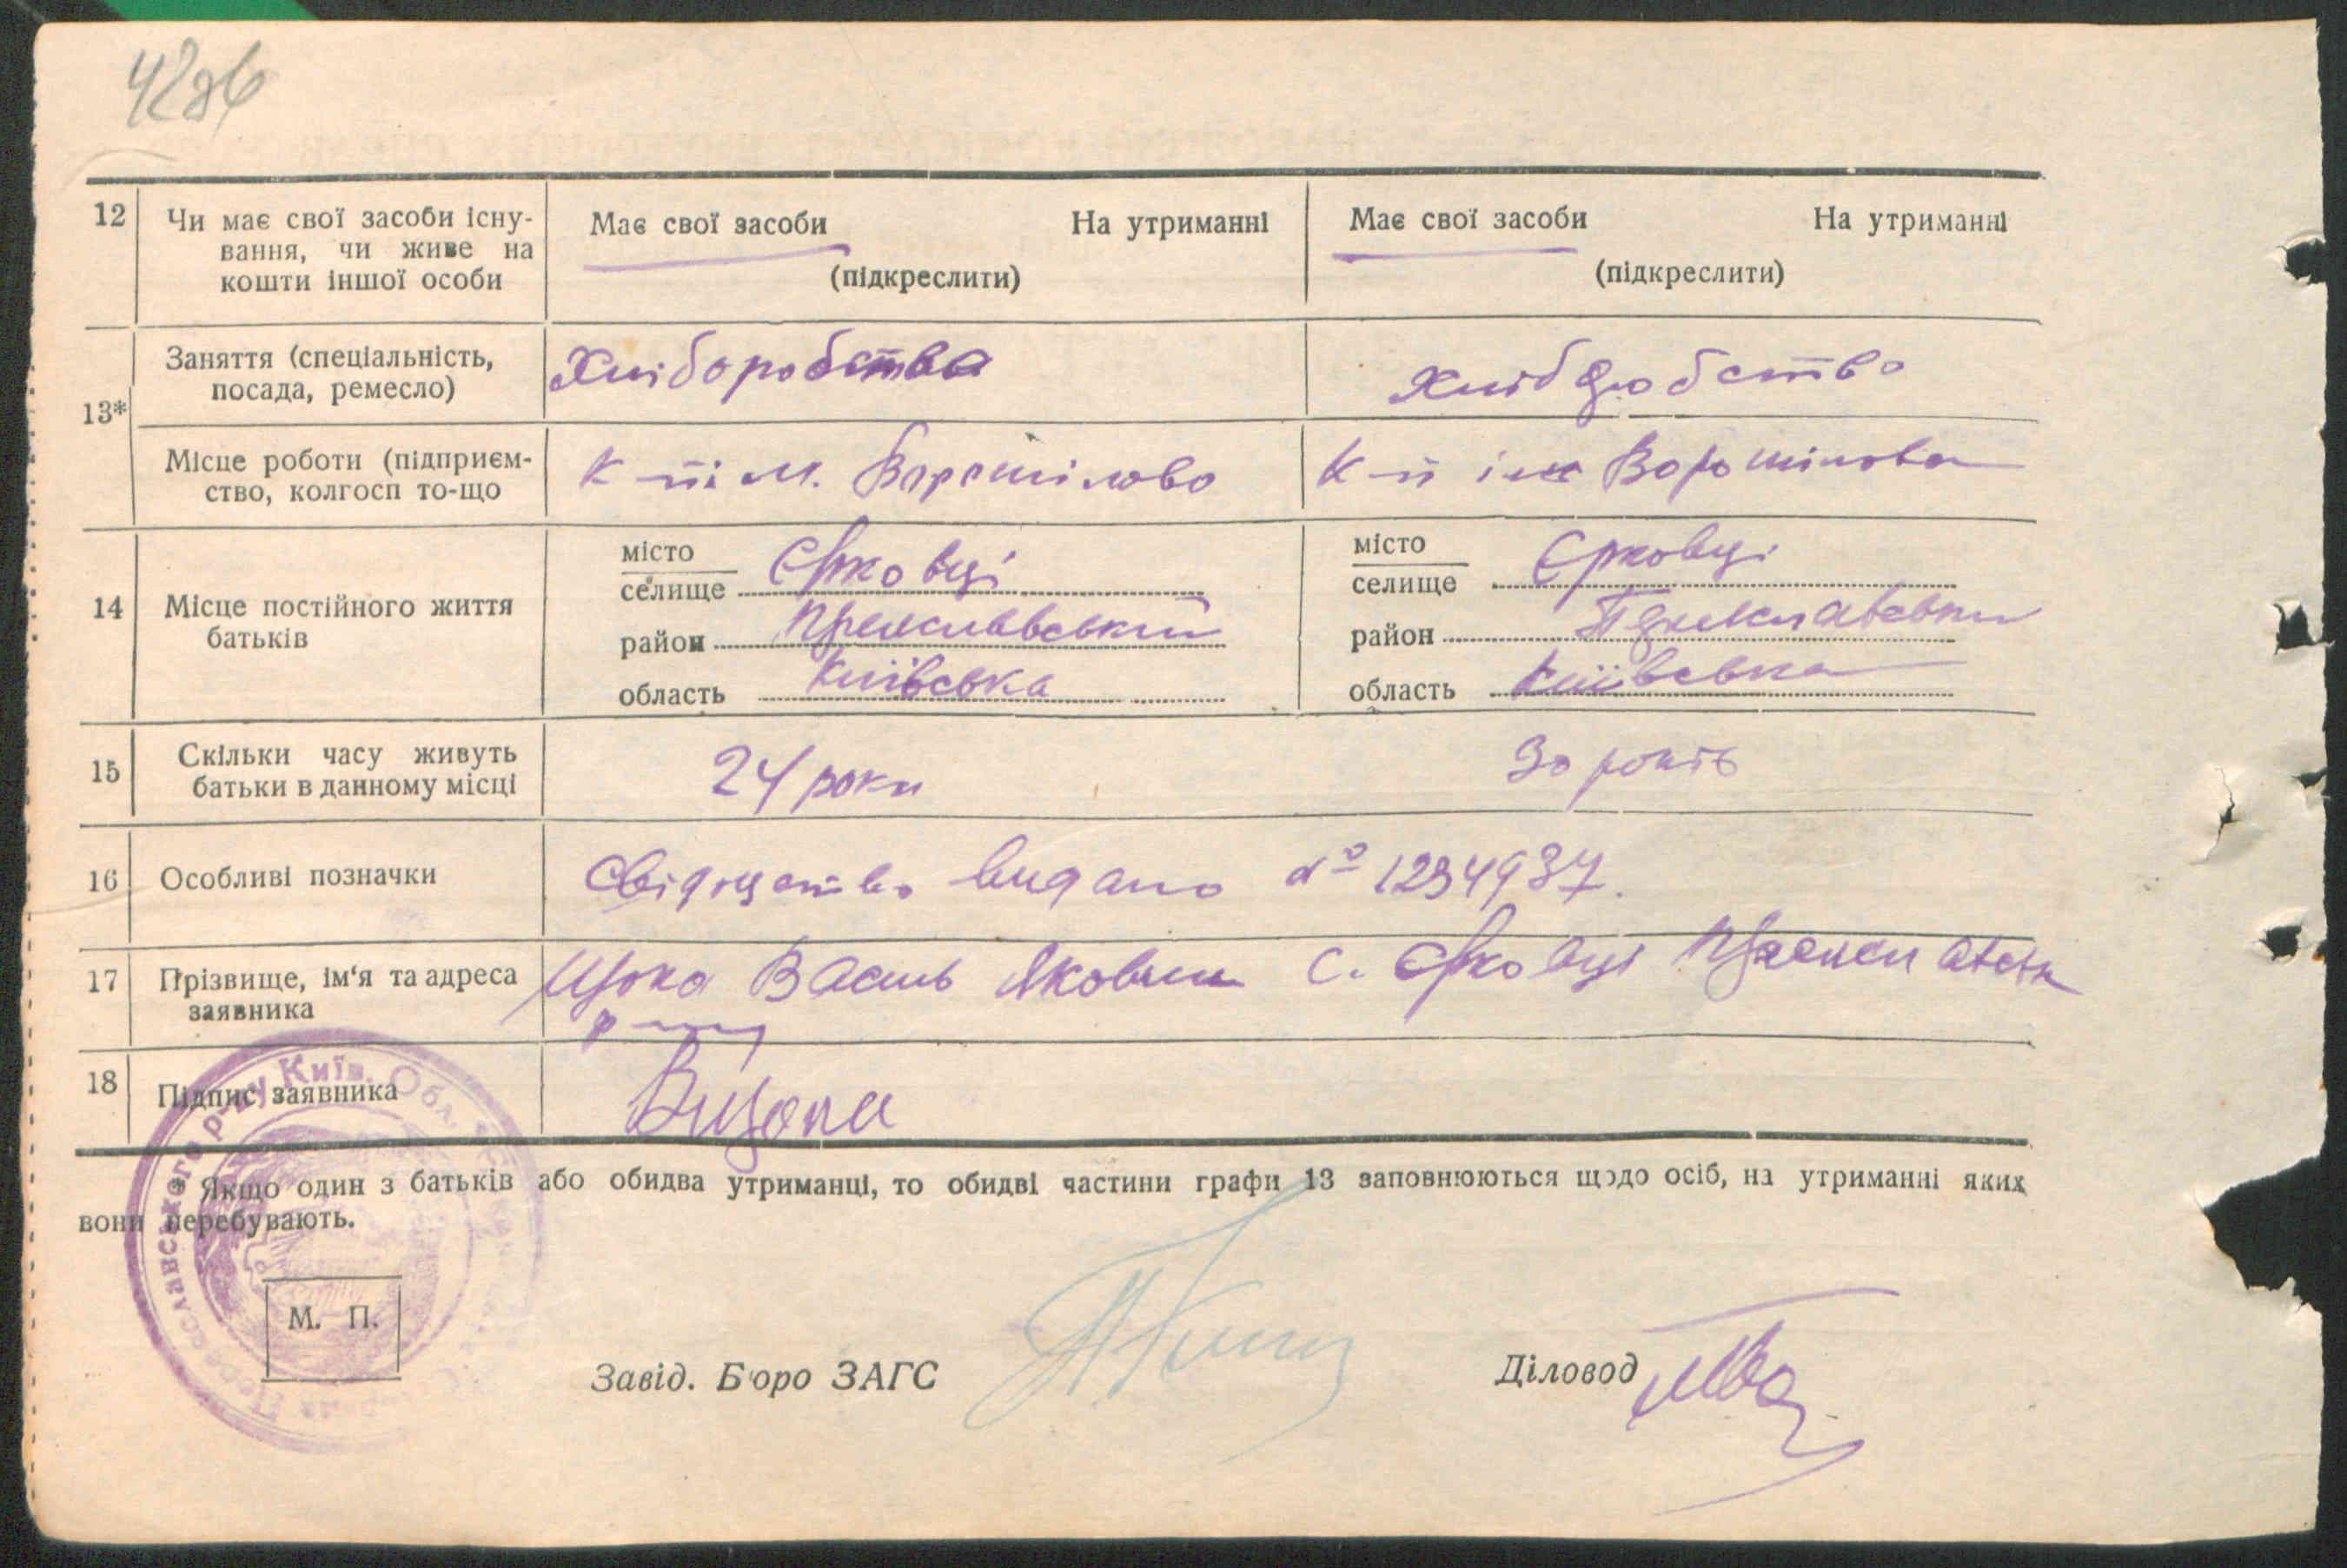 12 Чи має свої засоби існу-
вання, чи живе на
кошти іншої особи
Має свої засоби На утриманні
(підкреслити)
Має свої засоби На утриманні
(підкреслити)
13*
Заняття (спеціальність,
посада, ремесло)
Хліборобства
Хліборобство
Місце роботи (підприєм-
ство, колгосп то-що
К-п ім. Ворошілова
К-п ім Ворошілова
14 Місце постійного життя
батьків
місто
селище Єрковці
район
область Київська
місто
селище Єрковці
район
область Київська
15 Скільки часу живуть
батьки в данному місці
24 роки
30 років
16 Особливі позначки
Свідоцтво видано № 1234937.
17 Прізвище, ім'я та адреса
заявника
Василь Якович с. Єрковці
18 Підпис заявника
* Якщо один з батьків або обидва утриманці, то обидві частини графи 13 заповнюються щодо осіб, на утриманні яких
вони перебувають.
М. П.
Завід. Бюро ЗАГС
Діловод